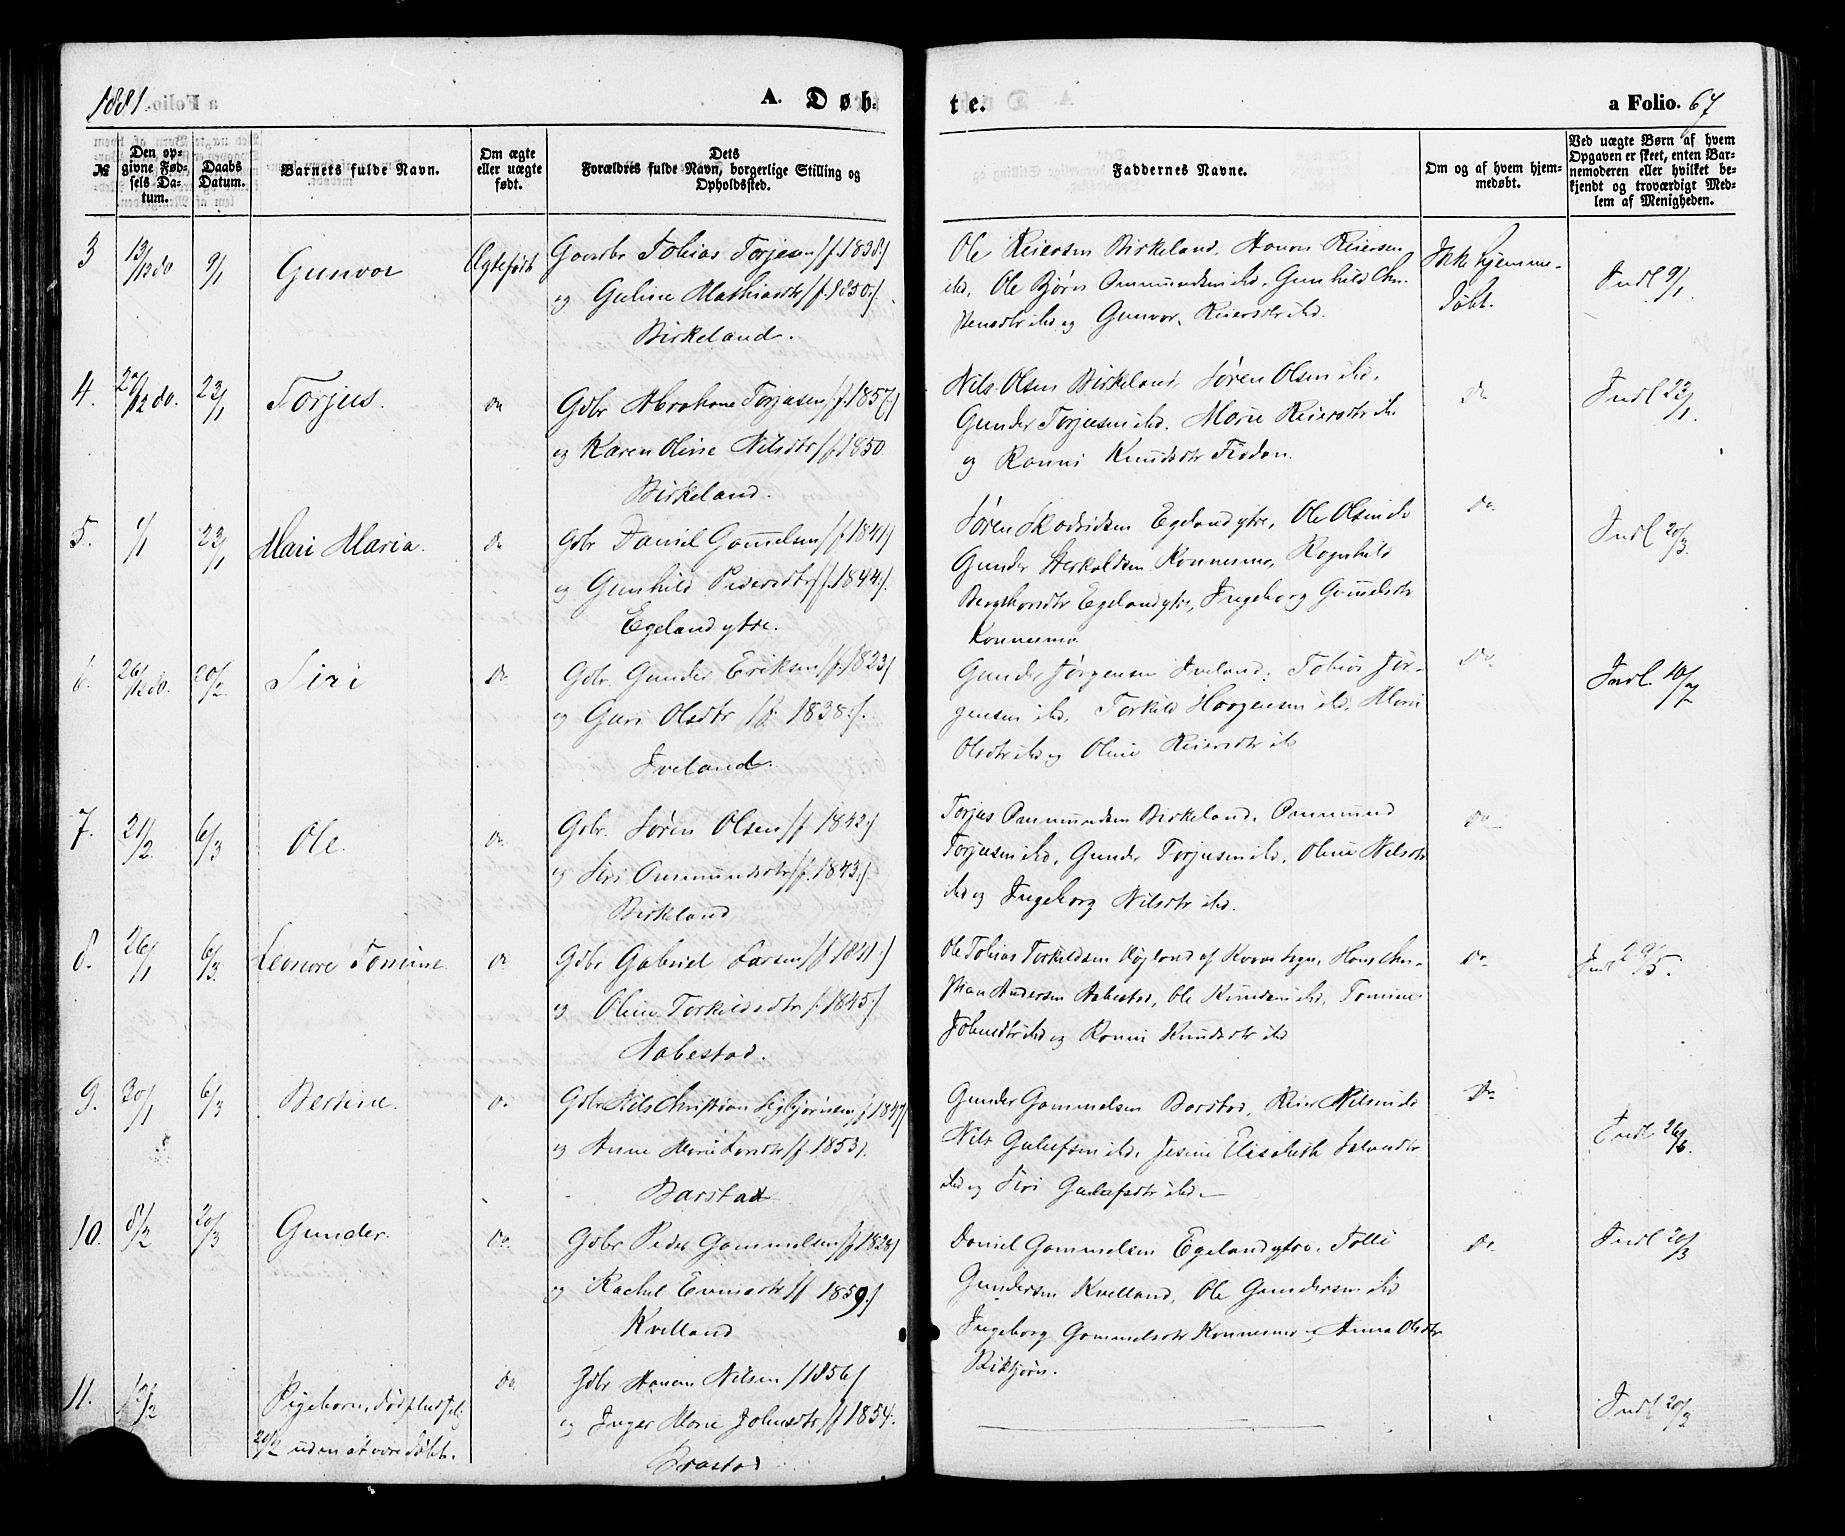 1881. A. Døb- te. a Folio. 67
№ Den opgivne Fødsels Datum. Daabs Datum. Barnets fulde Navn. Om ægte eller uægte født. Dets Forældres fulde Navn, borgerlige Stilling og Opholdssted. Faddernes Navne. Om og af hvem hjemmedøbt. Ved uægte Børn af hvem Opgaven er skeet, enten Barnemoderen eller hvilket bekjendt og troværdigt Medlem af Menigheden.
3 13/12 do 9/1 Gunvor Ægtefødt Gaardbr Tobias Torjesen /f. 1838/
og Guline Mathiasdtr /f. 1850./
Birkeland.
Ole Reiersen Birkeland, Haaver Reiersen
ibd, Ole Bjørn Aanmundsen ibd, Gunhild Chri-
stensdtr ibd og Gunvor Reiersdtr ibd.
Ikke hjemme-
døbt.
Indl 9/1.
4. 20/12 do. 23/1 Torjus. do Gdbr Abraham Torjusen /f. 1857/
og Karen Oline Nilsdtr /f. 1850
Birkeland.
Nils Olsen Birkeland, Søren Olsen ibd,
Gunder Torjusen ibd. Marie Reiersdtr ibd
og Ranni Knudsdtr
do
Indl 23/1.
5. 1/1 23/1 Mari Maria. do Gdbr Daniel Gommelsen /f. 1841/
og Gunhild Pedersdtr /f. 1844./
Egeland ytre.
Søren Egeland ytre, Ole Olsen do
Gunder Herkoldsen Konnesmo, Ragnhild
Egeland ytre, Ingeborg Gommelsdtr
Konnesmo
do
Indl 20/3.
6. 26/12 do. 20/2 Siri do Gdbr. Gunder Eriksen /f. 1823/
og Guri Olsdtr /f. 1838./.
Iveland.
Gunder Jørgensen Iveland, Tobias Jør-
gensen ibd, Torkild Haagensen ibd, Mari
Olsdtr ibd og Oline Reiersdtr ib
Do
Indl. 10/7
7. 21/2 6/3 Ole. do Gdbr. Søren Olsen /f. 1842./
og Siri Aanmundsdtr /f. 1843./.
Birkeland
Torjus Aanmundsen Birkeland, Aanmund
Torjusen ibd, Gunder Torjusen ibd, Oline Nilsdtr
ibd og Ingeborg Nilsdtr ibd.
do
8. 26/1 6/3. Leonore Tomine do Gdbr Gabriel Larsen /f. 1841./
og Oline Torkildsdtr /f. 1845./
Aabestad.
Ole Tobias Torkildsen Høyland af Sogn, Hans Chri-
stian Andersen Aabestad, Ole Knudsen ibd, Tomine
Johnsdtr ibd og Ranni Knudsdtr ibd
Do
Indl 29/5.
9. 30/1 6/3 Bertine. do Gdbr Nils Christian Sigbjørnsen /f 1847/
og Anne Marie /f. 1853/.
Barstad
Gunder Gommelsen Barstad, Reier Nilsen do
Nils Gulufsen ibd, Jesine Elisabeth
ibd og Siri Gulufsdtr ibd.
Do
Indl 26/6.
10. 8/2 20/3 Gunder. Do Gdbr Peder Gommelsen /f 1828/
og Rachel /f 1859./
Kvelland
Daniel Gommelsen Egeland ytre. Tolli
Gundersen Kvelland, Ole Gundersen ibd
Ingeborg Gommelsdtr Konnesmo, Anna Olsdtr
do
Indl 20/3
11. 13/2 Pigebarn, død pludselig
20/2 uden at være døbt.
Do Gdbr Haaver Nilsen /1856/
og Inger Marie Johnsdtr /f 1854.
Indl 20/3